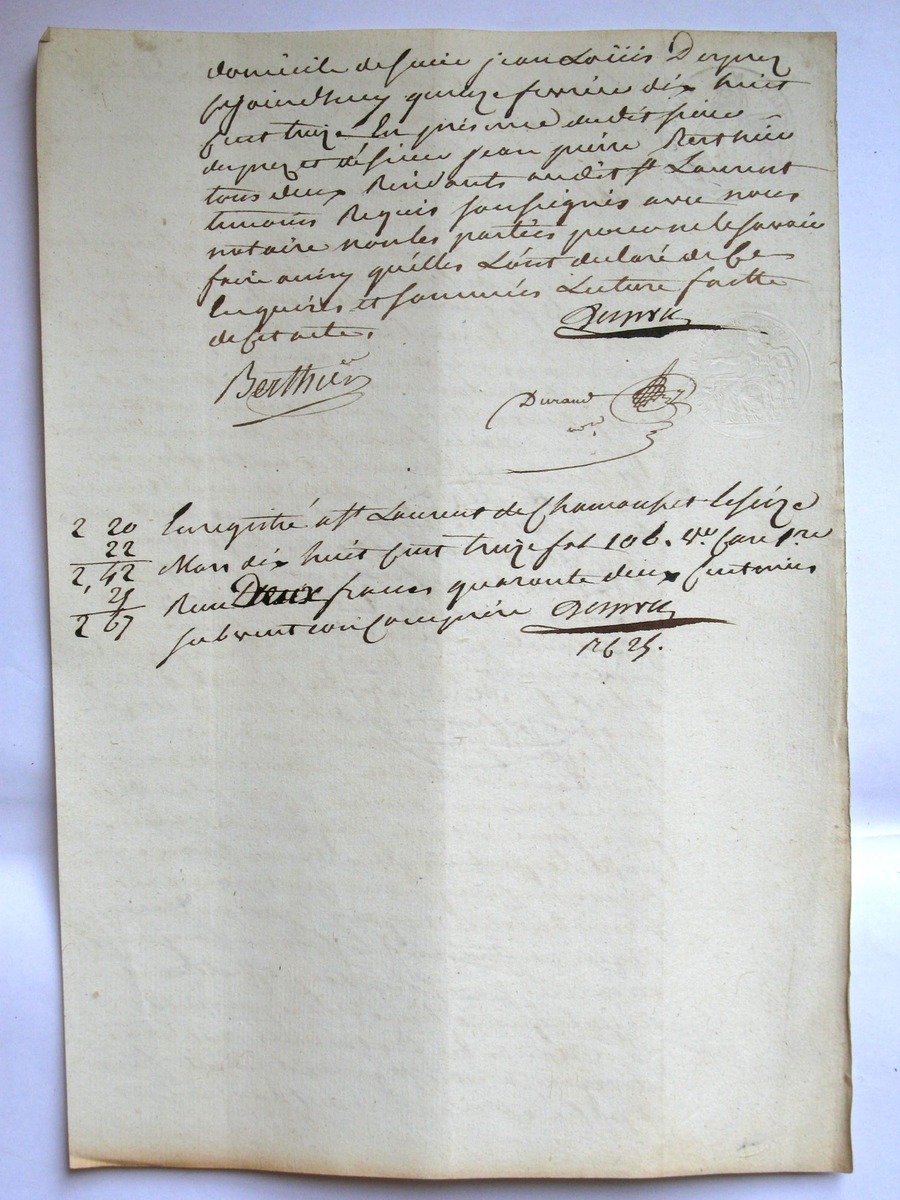 domicile de sieur jean Loüis Duprez
cejourdhuy quinze fevrier dix huit
cent treize En présence dudit sieur
duprez et de sieur jean pierre Berthier
tous deux Residants audit St Laurent
temoins Requis soussignés avec nous
notaire non les parties pour ne le savoir
faire ainsy qu'elles L'ont declaré de Ce
Enquises et sommées Lecture faitte
de Cet acte.
Berthier
Durand
nore
2 20 Enregistré a St Laurent de Chamousset le seize
22 Mars dix huit Cent treize fol 106. vo Case 1re
2,42 Recu Deux francs quarante deux Centimes
25 subvention Comprise
2 67